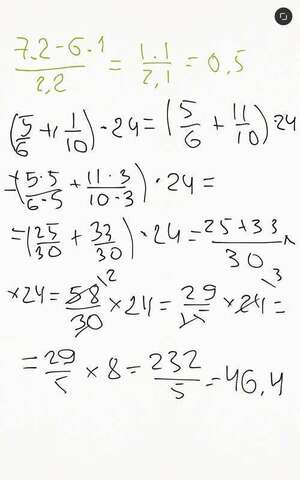 (7.2-6.1)/2,2 = 1.1/2,1 = 0,5
(5/6 + 1 1/10) · 24 = (5/6 + 11/10) 24
= (5·5/6·5 + 11·3/10·3) · 24 =
= (25/30 + 33/30) · 24 = 25+33/30 ×
×24 = 58/30 ×24 = 29/15 × 24 =
= 29/5 × 8 = 232/5 = 46,4